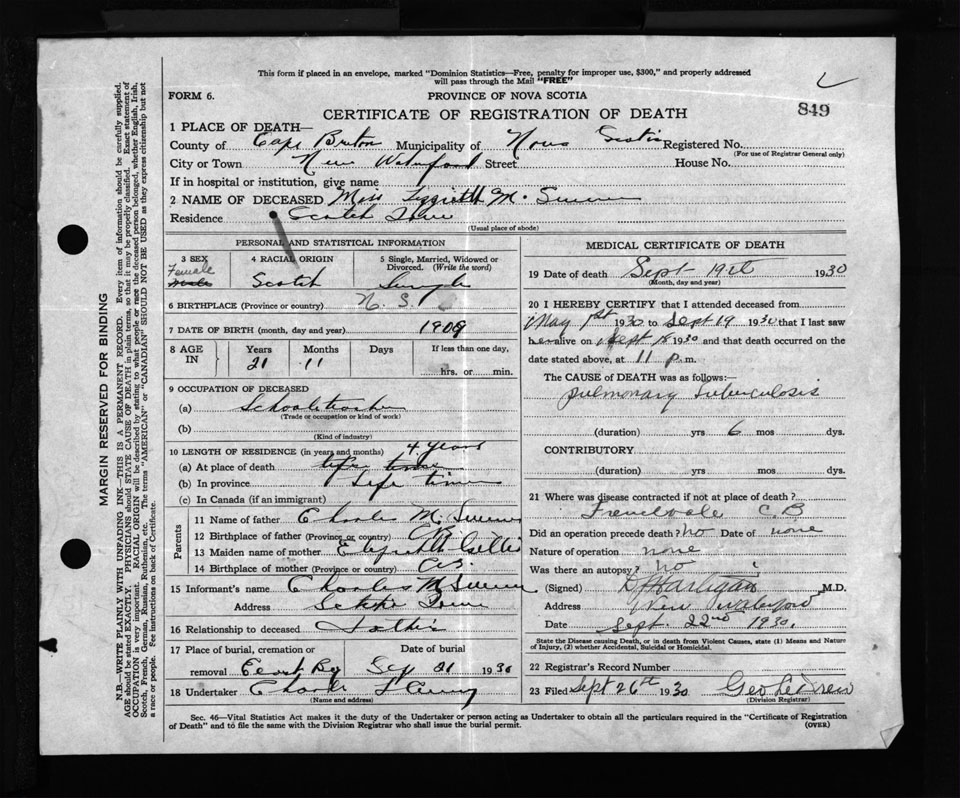 This form if placed in an envelope, marked "Dominion Statistics—Free, penalty for improper use, $300," and properly addressed
will pass through the Mail "FREE"
FORM 6.
PROVINCE OF NOVA SCOTIA
CERTIFICATE OF REGISTRATION OF DEATH
849
1 PLACE OF DEATH—
County of Cape Breton Municipality of Nova Scotia Registered No.
(For use of Registrar General only)
City or Town New Waterford Street House No.
If in hospital or institution, give name
2 NAME OF DECEASED Miss M.
Residence Scotch Town
(Usual place of abode)
PERSONAL AND STATISTICAL INFORMATION
3 SEX Female
4 RACIAL ORIGIN Scotch
5 Single, Married, Widowed or Divorced. (Write the word) Single
6 BIRTHPLACE (Province or country) N. S.
7 DATE OF BIRTH (month, day and year) 1909
8 AGE IN
Years Months Days If less than one day,
21 11 hrs. or min.
9 OCCUPATION OF DECEASED
(a)
(Trade or occupation or kind of work)
(b)
(Kind of industry)
10 LENGTH OF RESIDENCE (in years and months) 4 years
(a) At place of death life time
(b) In province Life time
(c) In Canada (if an immigrant)
Parents
11 Name of father Charles
12 Birthplace of father (Province or country) C B
13 Maiden name of mother Gillis
14 Birthplace of mother (Province or country) C B.
15 Informant's name Charles
Address
16 Relationship to deceased Father
17 Place of burial, cremation or removal
Date of burial
Sep 21 1930
18 Undertaker
(Name and address)
MEDICAL CERTIFICATE OF DEATH
19 Date of death Sept 19th 1930
(Month, day and year)
20 I HEREBY CERTIFY that I attended deceased from
May 1st 1930 to Sept 19 1930 that I last saw
her alive on Sept 18 1930 and that death occurred on the
date stated above, at 11 p.m.
The CAUSE of DEATH was as follows:—
pulmonary Tuberculosis
(duration) yrs 6 mos dys.
CONTRIBUTORY
(duration) yrs mos dys.
21 Where was disease contracted if not at place of death?
Frenchvale C. B
Did an operation precede death? no Date of none
Nature of operation none
Was there an autopsy? no
(Signed) Hartigan M.D.
Address New Waterford
Date Sept. 22nd 1930.
State the Disease causing Death, or in death from Violent Causes, state (1) Means and Nature
of Injury, (2) whether Accidental, Suicidal or Homicidal.
22 Registrar's Record Number
23 Filed Sept 26th 1930 Geo
(Division Registrar)
Sec. 46—Vital Statistics Act makes it the duty of the Undertaker or person acting as Undertaker to obtain all the particulars required in the "Certificate of Registration
of Death" and to file the same with the Division Registrar who shall issue the burial permit.
(OVER)
MARGIN RESERVED FOR BINDING
N.B.—WRITE PLAINLY WITH UNFADING INK—THIS IS A PERMANENT RECORD. Every item of information should be carefully supplied.
AGE should be stated EXACTLY. PHYSICIANS should STATE CAUSE OF DEATH in plain terms, so that it may be properly classified. Exact statement of
OCCUPATION is very important. RACIAL ORIGIN will be described by stating to what people or race the deceased person belonged, whether English, Irish,
Scotch, French, German, Russian, Ruthenian, etc. The terms "AMERICAN" or "CANADIAN" SHOULD NOT BE USED as they express citizenship but not
a race or people. See instructions on back of Certificate.